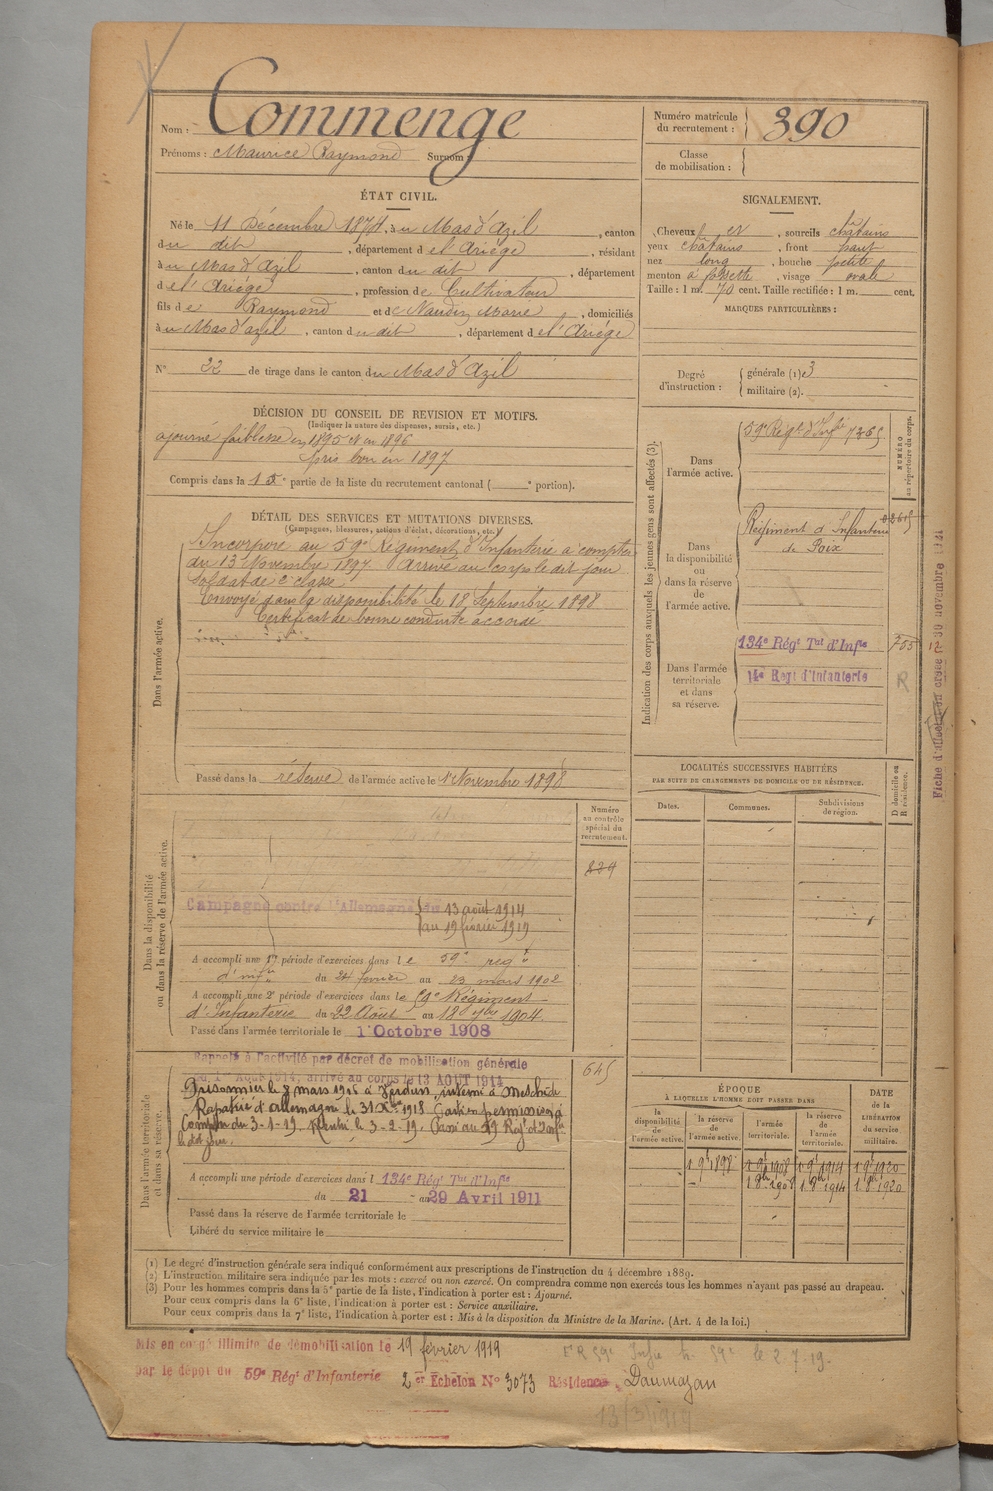 Nom : Commenge
Prénoms : Maurice Raymond Surnom :
Numéro matricule du recrutement : 390
Classe de mobilisation :
ÉTAT CIVIL.
Né le 11 Décembre 1874, au Mas d'Azil, canton
du dit, département de l'Ariège, résidant
au Mas d'Azil, canton du dit, département
de l'Ariège, profession de Cultivateur
fils de Raymond et de Naudin Marie, domiciliés
au Mas d'azil, canton du dit, département de l'Ariège
N° 22 de tirage dans le canton du Mas d'Azil
SIGNALEMENT.
Cheveux et, sourcils châtains
yeux châtains, front haut
nez long, bouche petite
menton à fossette, visage ovale
Taille : 1 m. 70 cent. Taille rectifiée : 1 m. cent.
MARQUES PARTICULIÈRES :
Degré d'instruction : générale (1) 3
militaire (2).
DÉCISION DU CONSEIL DE REVISION ET MOTIFS.
(Indiquer la nature des dispenses, sursis, etc.)
ajourné faiblesse en 1895 et en 1896
pris bon en 1897
Compris dans la 1e partie de la liste du recrutement cantonal ( e portion).
DÉTAIL DES SERVICES ET MUTATIONS DIVERSES.
(Campagnes, blessures, actions d'éclat, décorations, etc.)
Dans l'armée active.
Incorporé au 59e Régiment d'Infanterie à compter
du 13 Novembre 1897 Arrivé au corps le dit jour
Soldat de 2e classe
Envoyé dans la disponibilité le 18 Septembre 1898
Certificat de bonne conduite accordé
Passé dans la réserve de l'armée active le 1er Novembre 1898
Indication des corps auxquels les jeunes gens sont affectés (3).
NUMÉRO au répertoire du corps.
Dans l'armée active.
59e Régt d'Infie 7265
Dans la disponibilité ou dans la réserve de l'armée active.
Régiment d'Infanterie
de Foix
Dans l'armée territoriale et dans sa réserve.
134e Régt Tal d'Infie 755
14e Regt d'Infanterie R
LOCALITÉS SUCCESSIVES HABITÉES
PAR SUITE DE CHANGEMENTS DE DOMICILE OU DE RÉSIDENCE.
D domicile ou R résidence.
Dates. Communes. Subdivisions de région.
Numéro au contrôle spécial du recrutement.
Dans la disponibilité ou dans la réserve de l'armée active.
Campagne contre l'Allemagne du 13 août 1914
au 19 février 1919
A accompli une 1re période d'exercices dans le 59e régt
d'infie du 24 février au 23 mars 1902
A accompli une 2e période d'exercices dans le 59e Régiment
d'Infanterie du 22 Août au 18 7bre 1904
Passé dans l'armée territoriale le 1er Octobre 1908
Dans l'armée territoriale et dans sa réserve.
645
Rappelé à l'activité par décret de mobilisation générale
du 1er Août 1914, arrivé au corps le 13 AOUT 1914
Prisonnier le 8 mars 1916 à Verdun, interné à Meschede
Rapatrié d'allemagne le 31 Xbre 1918
le dit jour
A accompli une période d'exercices dans l 134e Régt Tal d'Infie
du 21 au 29 Avril 1911
Passé dans la réserve de l'armée territoriale le
Libéré du service militaire le
ÉPOQUE
À LAQUELLE L'HOMME DOIT PASSER DANS
la disponibilité de l'armée active.
la réserve de l'armée active.
l'armée territoriale.
la réserve de l'armée territoriale.
DATE de la LIBÉRATION du service militaire.
1 9bre 1898 1 9bre 1908 1 9bre 1914 1 9bre 1920
1 8bre 1908 1 8bre 1914 1 8bre 1920
(1) Le degré d'instruction générale sera indiqué conformément aux prescriptions de l'instruction du 4 décembre 1889.
(2) L'instruction militaire sera indiquée par les mots : exercé ou non exercé. On comprendra comme non exercés tous les hommes n'ayant pas passé au drapeau.
(3) Pour les hommes compris dans la 5e partie de la liste, l'indication à porter est : Ajourné.
Pour ceux compris dans la 6e liste, l'indication à porter est : Service auxiliaire.
Pour ceux compris dans la 7e liste, l'indication à porter est : Mis à la disposition du Ministre de la Marine. (Art. 4 de la loi.)
Mis en congé illimité de démobilisation le 19 février 1919
par le dépôt du 59e Régt d'Infanterie 2er Echelon N° 3073 Résidence Daumazan
le 2.7.19.
13/3/1919